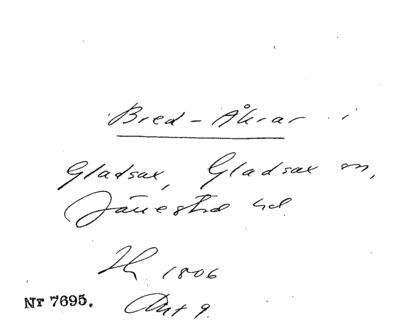 Bred-Åkrar i
Gladsax, Gladsax sn,
Järrestad hd
1806
Nr 7695. Akt 9.